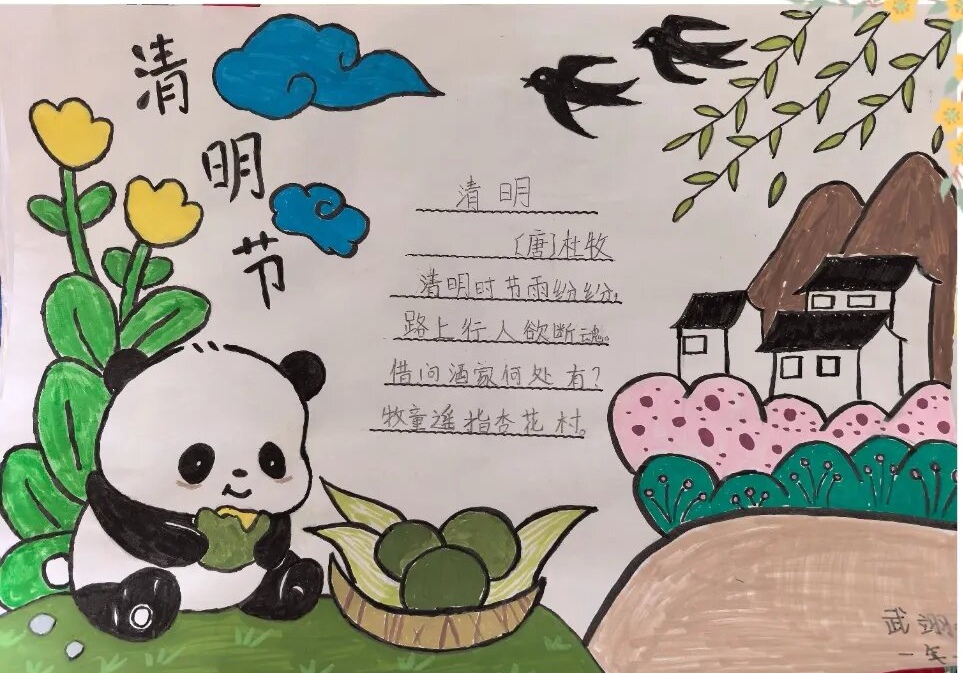 清明节
清明
〔唐〕杜牧
清明时节雨纷纷,
路上行人欲断魂。
借问酒家何处有?
牧童遥指杏花村。
武
一年